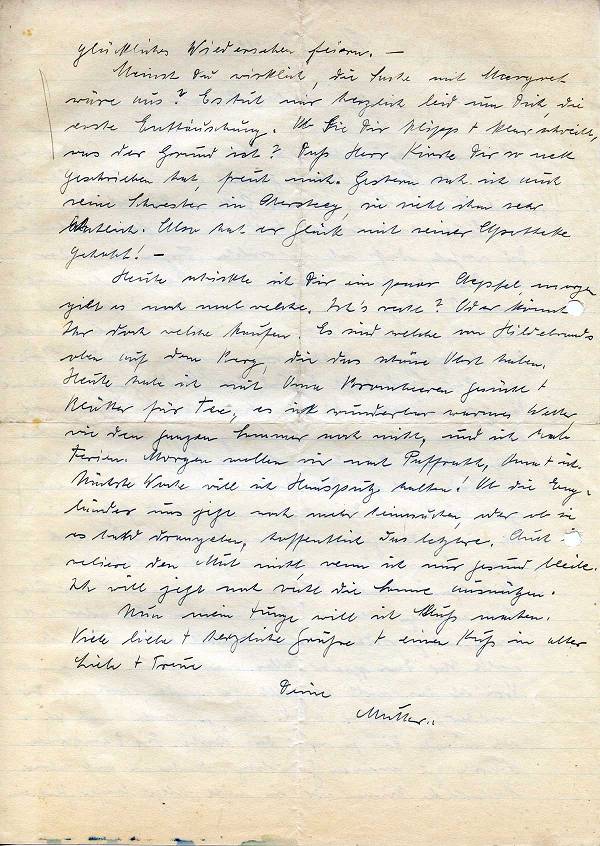 glückliches Wiedersehen feiern. —
Meinst Du wirklich, die Sache mit Margret
wäre aus? Es tut mir herzlich leid um Dich, die
erste Enttäuschung. Ob Sie Dir klipp + klar schreibt,
was der Grund ist? Daß Herr Dir so nett
geschrieben hat, freut mich. Gestern sah ich auch
seine Schwester in, sie sieht ihm sehr
ähnlich. Also hat er Glück mit seiner Apotheke
gehabt! —
Heute schickte ich Dir ein paar Aepfel, morgen
gibt es noch mal welche. Ist's recht? Oder könnt
Ihr dort welche kaufen. Es sind welche von Hildebrands
oben auf dem Berg, die das schöne Obst haben.
Heute habe ich mit Oma Brombeeren gesucht +
Blätter für Tee, es ist wunderbar warmes Wetter
wie den ganzen Sommer noch nicht, und ich habe
Ferien. Morgen wollen wir nach Paffrath, Oma + ich.
Nächste Woche will ich Hausputz halten! Ob die Eng-
länder uns jetzt noch mehr heimsuchen, oder ob sie
es bald drangeben, hoffentlich das letztere. Auch ich
verliere den Mut nicht, wenn ich nur gesund bleibe.
Ich will jetzt noch die Sonne ausnützen.
Nun mein Junge will ich Schluß machen.
Viele liebe + herzliche Grüße + einen Kuß in alter
Liebe + Treue
Deine
Mutter.